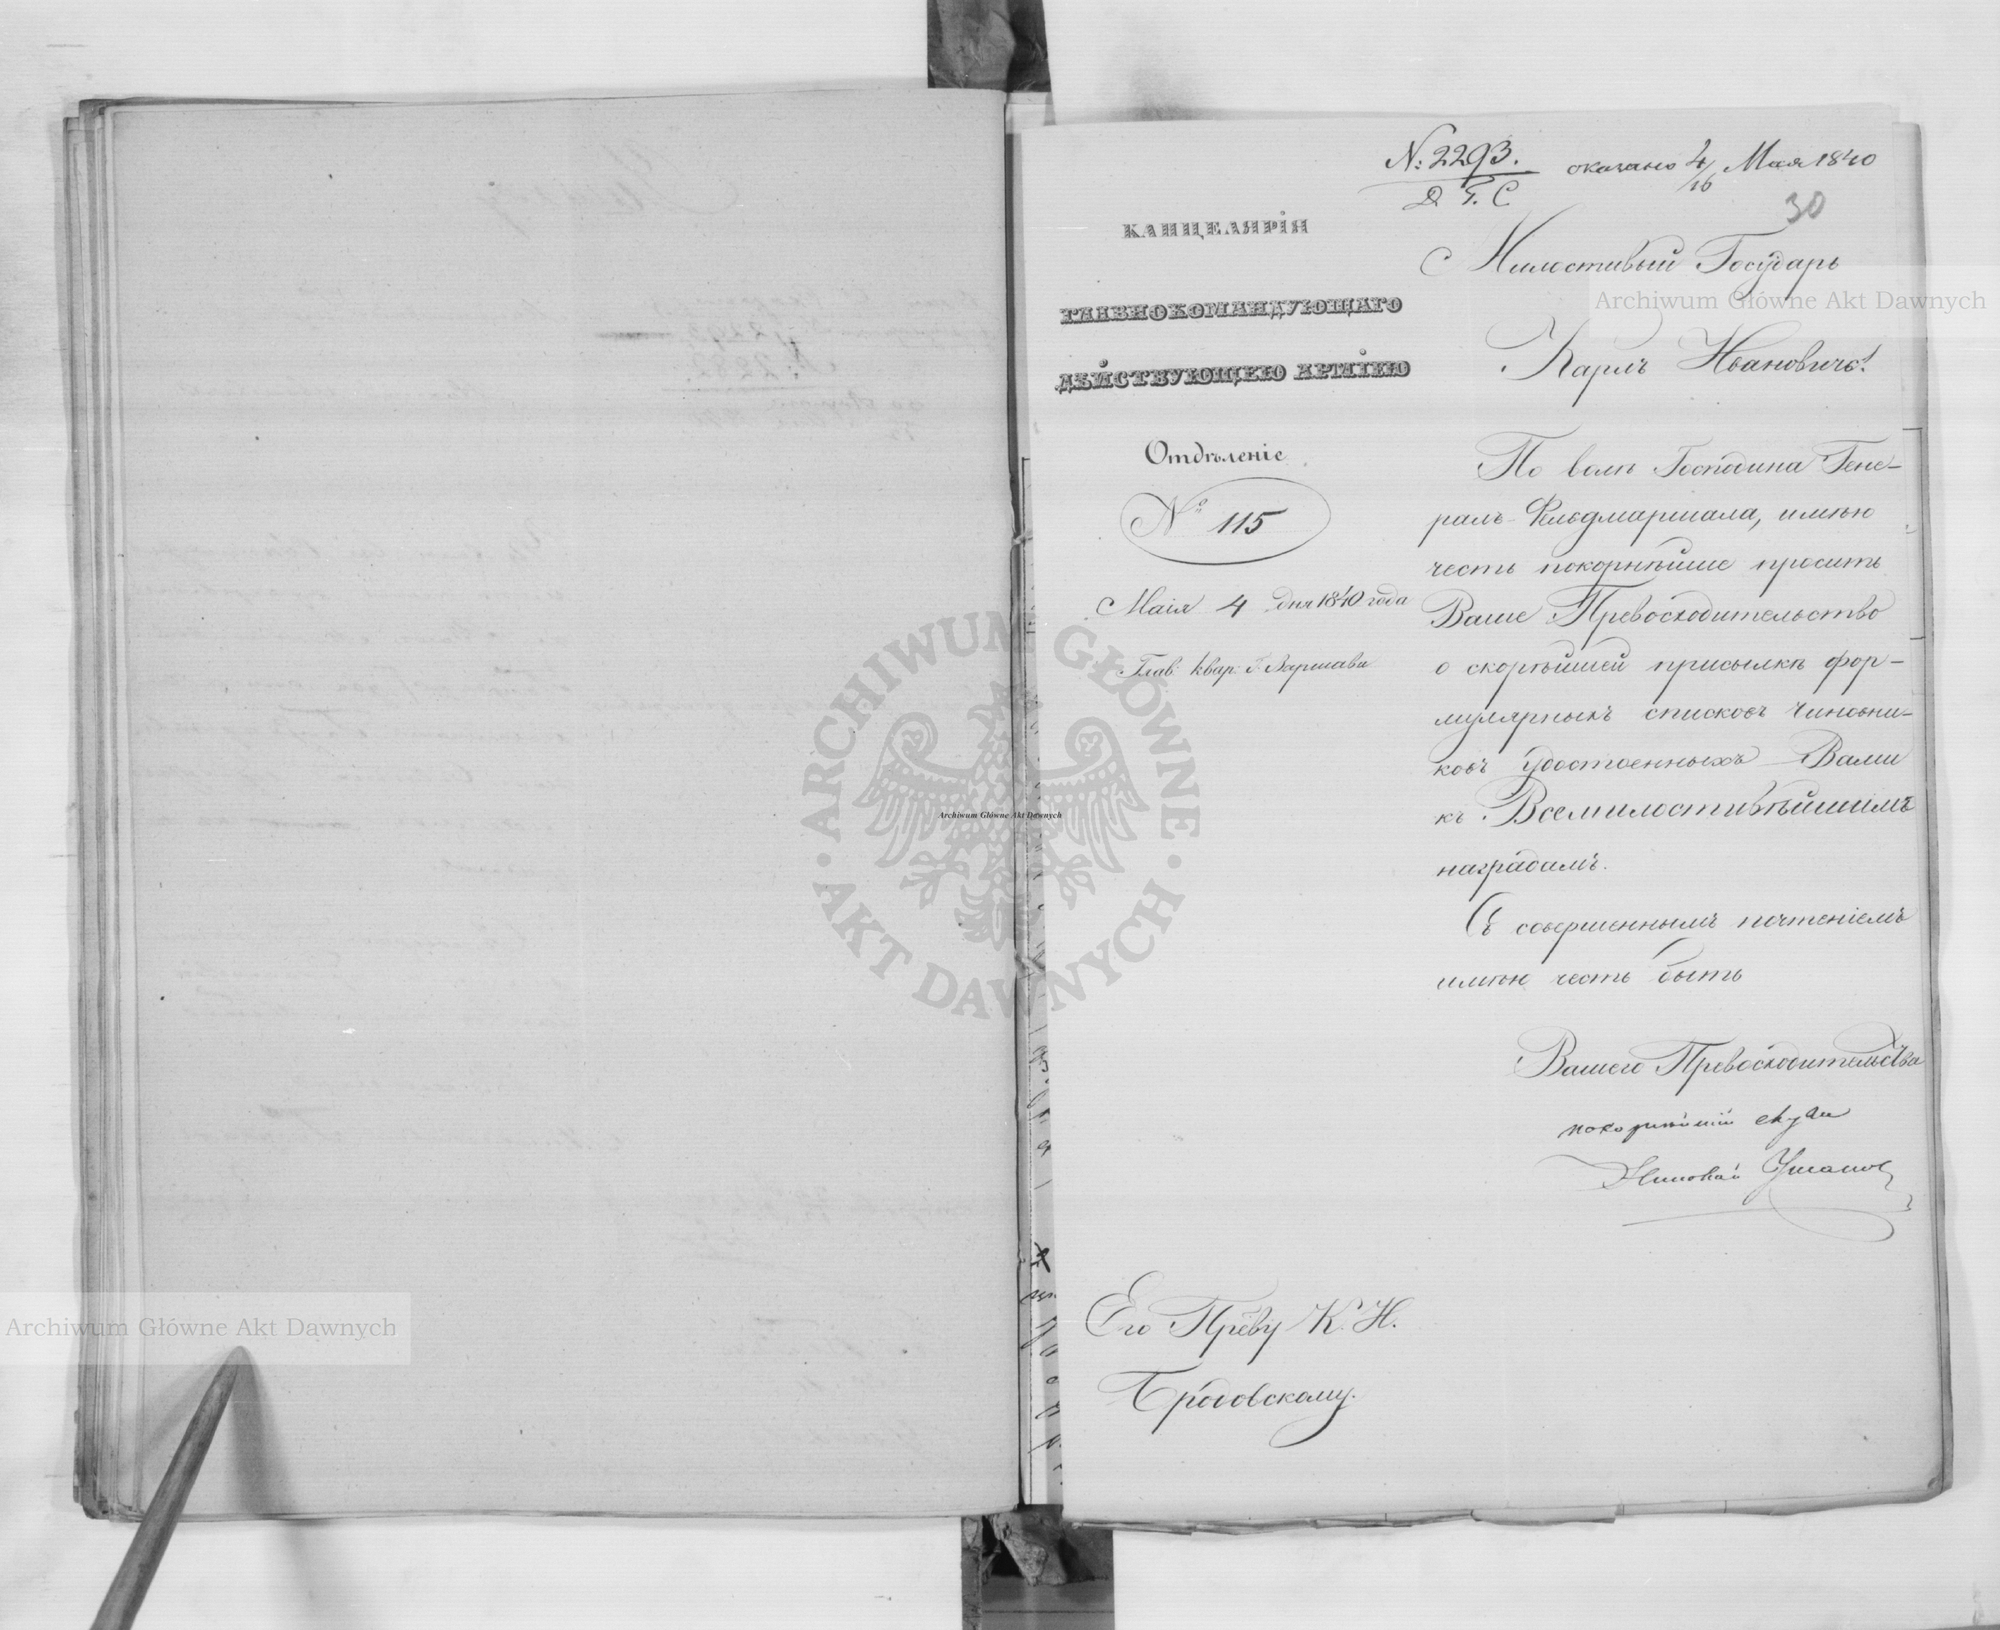 № 2293.
Д. Г. С.
оказано 4/16 Мая 1840
30
КАНЦЕЛЯРІЯ
ГЛАВНОКОМАНДУЮЩАГО
ДѢЙСТВУЮЩЕЮ АРМІЕЮ
Отдѣленіе
№ 115
Маія 4 дня 1840 года
Глав: квар: г. Варшава
Милостивый Государь
Карлъ Ивановичъ!
По волѣ Господина Гене-
ралъ-Фельдмаршала, имѣю
честь покорнѣйше просить
Ваше Превосходительство
о скорѣйшей присылкѣ фор-
мулярныхъ списковъ чиновни-
ковъ удостоенныхъ Вами
къ Всемилостивѣйшимъ
наградамъ.
Съ совершеннымъ почтеніемъ
имѣю честь быть
Вашего Превосходительства
покорнѣйшій слуга
Николай Ушаковъ
Его Прев‍у К. И.
Бродовскому.
Archiwum Główne Akt Dawnych
Archiwum Główne Akt Dawnych
Archiwum Główne Akt Dawnych
ARCHIWUM GŁÓWNE
· AKT DAWNYCH ·